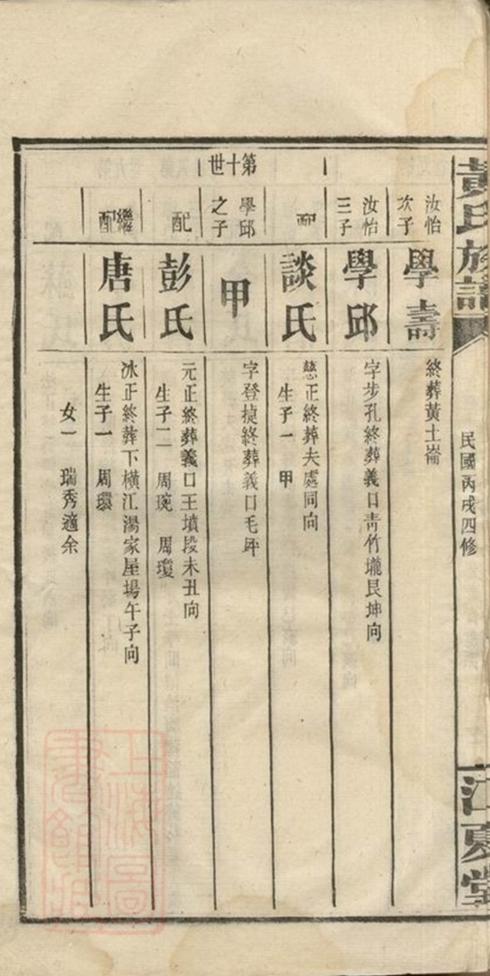 黃氏族譜
民國丙戌四修
江夏堂
汝怡次子
學壽
終葬黃土崙
汝怡三子
學邱
字步孔終葬義口青竹壠艮坤向
配
談氏
慈正終葬夫處同向
生子一 甲
第十世
學邱之子
甲
字登捷終葬義口毛坪
配
彭氏
元正終葬義口王墳段未丑向
生子二 周琬 周瓊
繼配
唐氏
冰正終葬下橫江湯家屋場午子向
生子一 周環
女一 瑞秀適余
上海圖書館藏